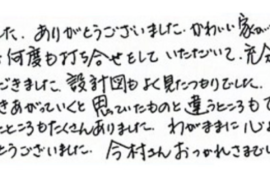 した。ありがとうございました。かわいい家の
何度も打ち合せをしていただいて、充分
できました。設計図もよく見たつもりでした。
きあがっていくと思っていたものと違うところもで
たところもたくさんありました。わがままに心よ
とうございました。今村さんおつかれさまでし